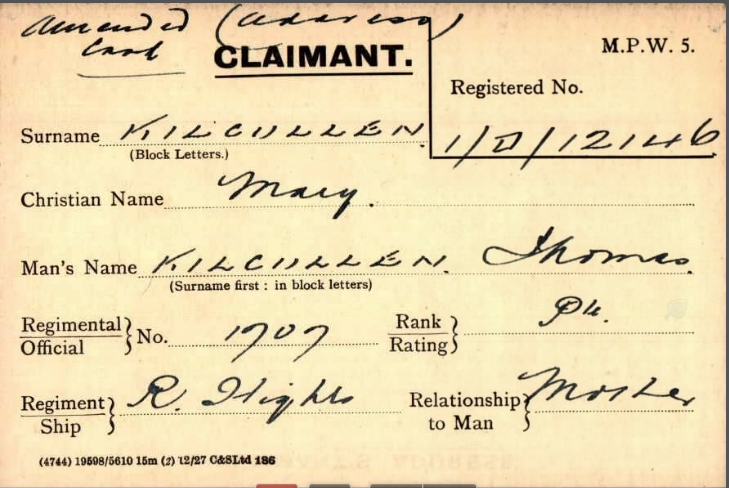 Amended (Address)
Card
CLAIMANT.
M.P.W. 5.
Registered No.
1/D/12146
Surname KILCULLEN
(Block Letters.)
Christian Name Mary.
Man's Name KILCULLEN. Thomas.
(Surname first : in block letters)
Regimental Official } No. 1707 Rank Rating } Pte.
Regiment Ship } R. Highls Relationship to Man } Mother
(4744) 19598/5610 15m (2) 12/27 C&SLtd 186